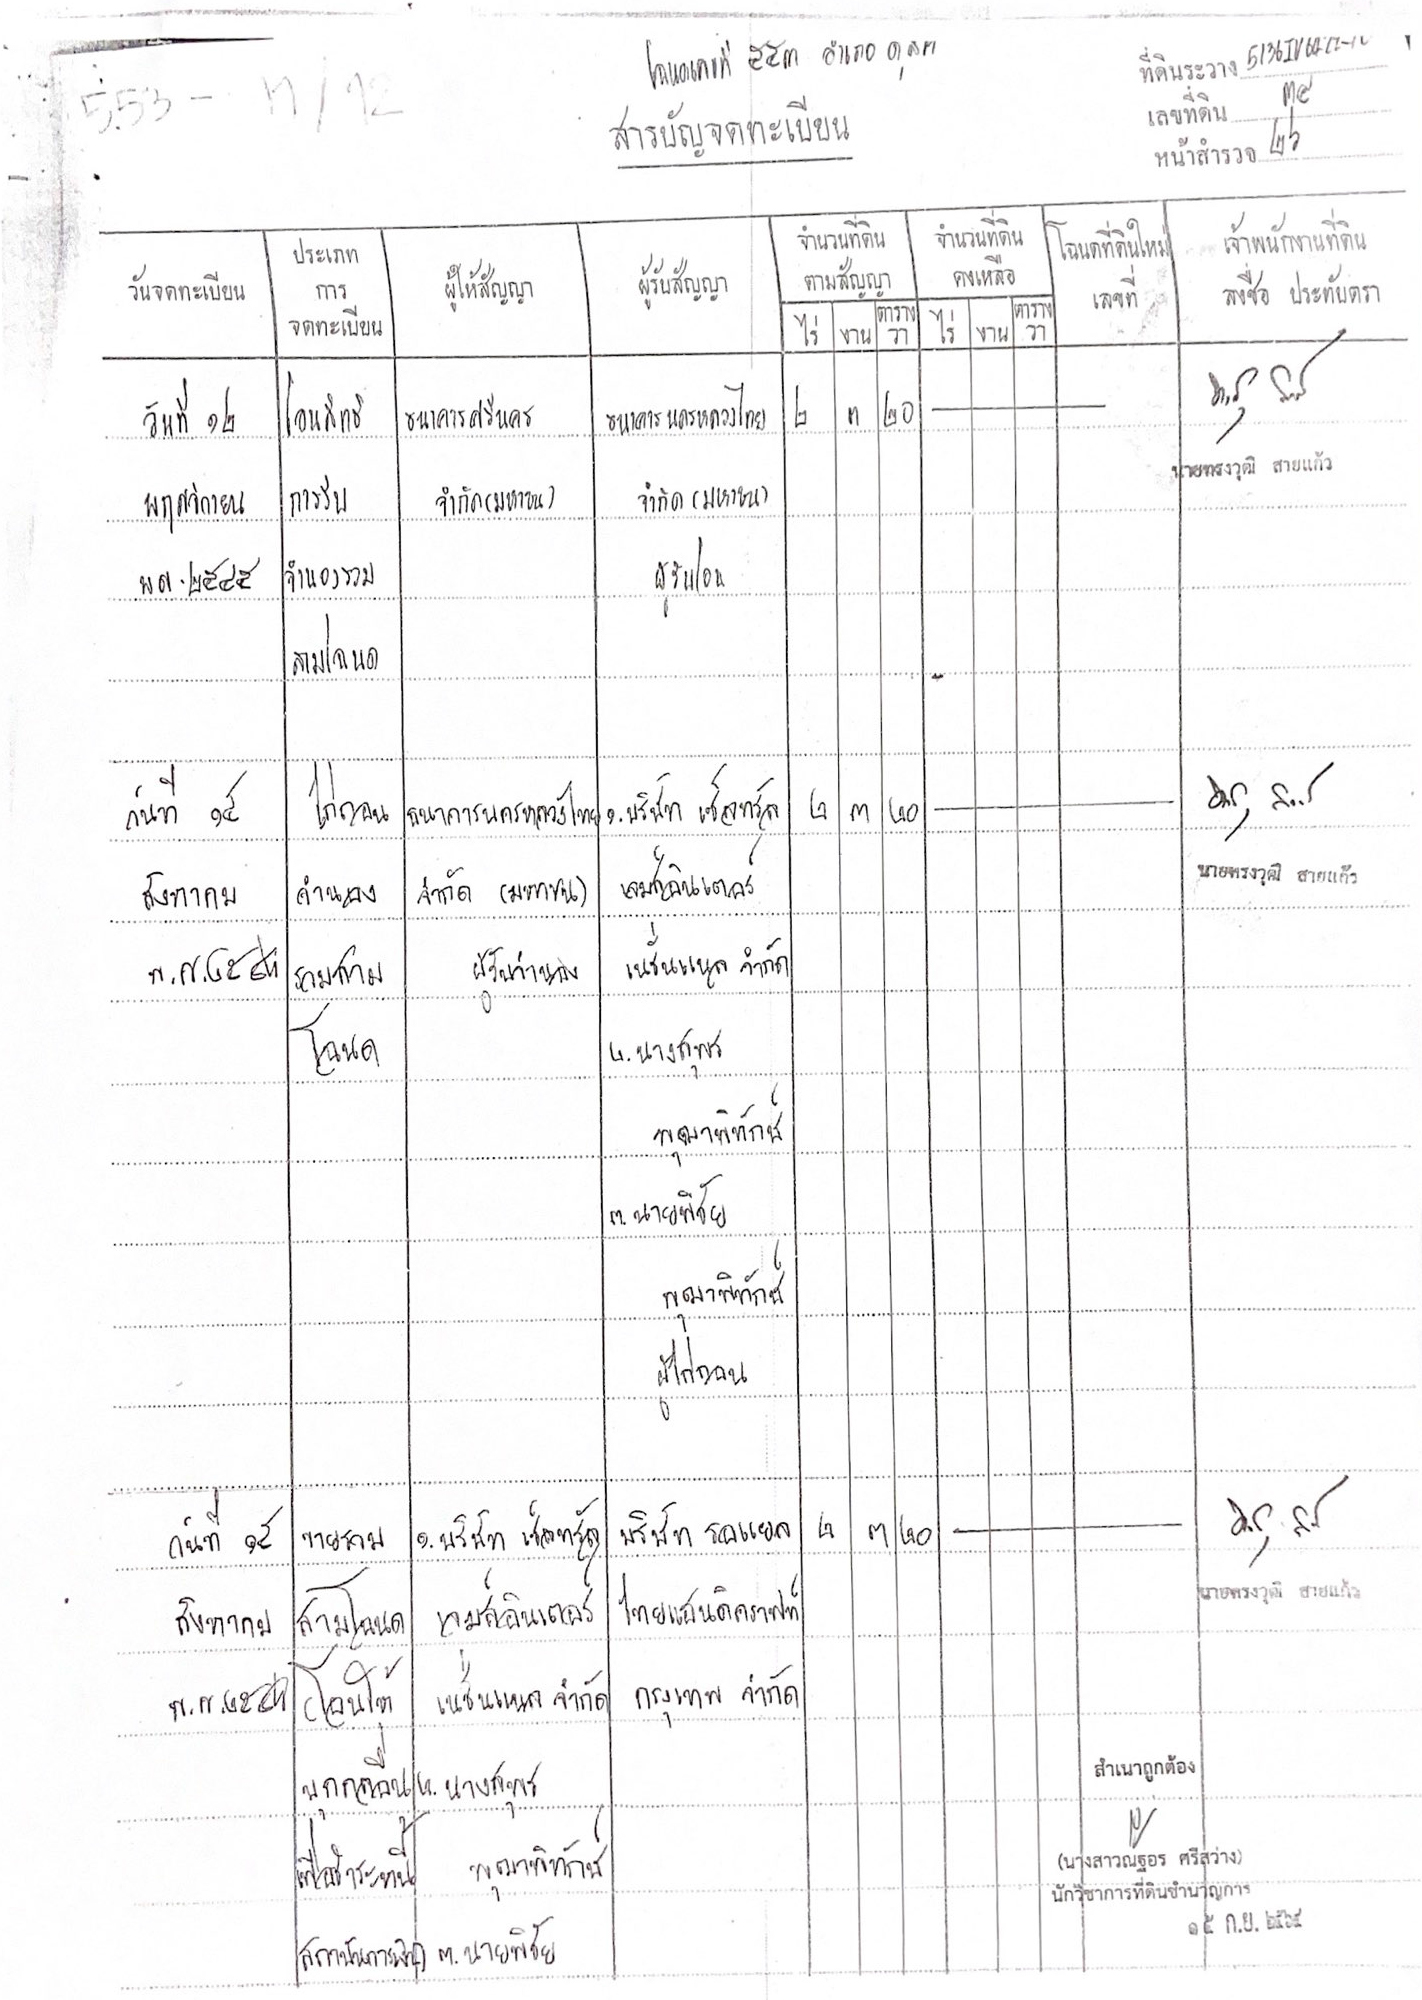 โฉนดเลขที่ ๕๕๓ อำเภอ ดุสิต
553 - ท/12
ที่ดินระวาง
เลขที่ดิน ๓๕
สารบัญจดทะเบียน
หน้าสำรวจ ๒๖
วันจดทะเบียน ประเภทการจดทะเบียน ผู้ให้สัญญา ผู้รับสัญญา จำนวนที่ดินตามสัญญา จำนวนที่ดินคงเหลือ โฉนดที่ดินใหม่เลขที่ เจ้าพนักงานที่ดิน ลงชื่อ ประทับตรา
ไร่ งาน ตารางวา ไร่ งาน ตารางวา
วันที่ ๑๒ โอนสิทธิ ธนาคารศรีนคร ธนาคารนครหลวงไทย ๒ ๓ ๒๐
นายทรงวุฒิ สายแก้ว
พฤศจิกายน การรับ จำกัด (มหาชน) จำกัด (มหาชน)
พ.ศ. ๒๕๔๕ จำนองรวม ผู้รับโอน
สามโฉนด
วันที่ ๑๕ ไถ่ถอน ธนาคารนครหลวงไทย ๑. บริษัท เซ็ลทรัล ๒ ๓ ๒๐
นายทรงวุฒิ สายแก้ว
สิงหาคม จำนอง จำกัด (มหาชน) เจมส์อินเตอร์
พ.ศ. ๒๕๔๗ รวมสาม ผู้รับจำนอง เนชั่นแนล จำกัด
โฉนด ๒. นางสุพร
พุฒาพิทักษ์
๓. นายพิชัย
พุฒาพิทักษ์
ผู้ไถ่ถอน
วันที่ ๑๕ ขายรวม ๑. บริษัท เซ็ลทรัล บริษัท รอแยล ๒ ๓ ๒๐
นายทรงวุฒิ สายแก้ว
สิงหาคม สามโฉนด เจมส์อินเตอร์ ไทยแฮนดิคราฟท์
พ.ศ. ๒๕๔๗ โอนให้ เนชั่นแนล จำกัด กรุงเทพ จำกัด
บุคคลอื่น ๒. นางสุพร
สำเนาถูกต้อง
เพื่อชำระหนี้ พุฒาพิทักษ์
(นางสาวณฐอร ศรีสว่าง)
นักวิชาการที่ดินชำนาญการ
๑๕ ก.ย. ๒๕๖๕
สถาบันการเงิน ๓. นายพิชัย